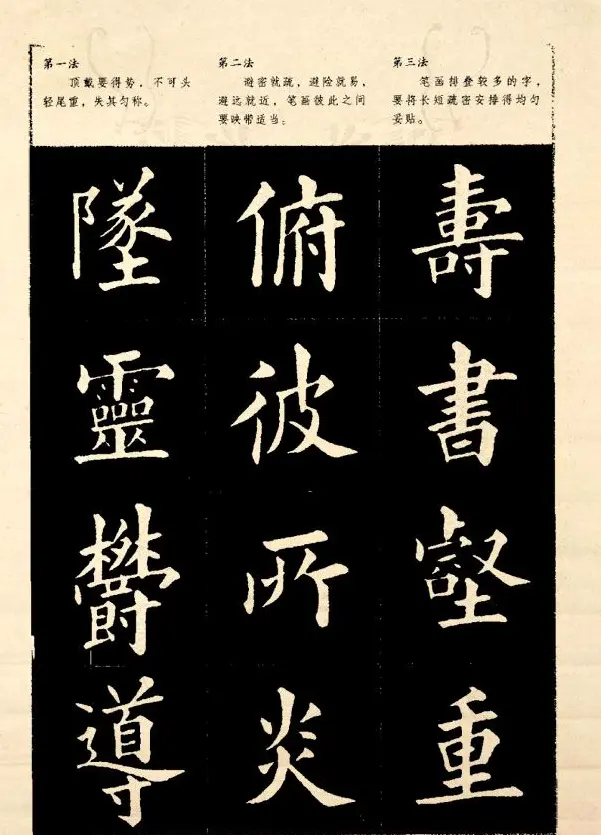 第一法
顶戴要得势，不可头
轻尾重，失其匀称。
第二法
避密就疏，避险就易，
避远就近，笔画彼此之间
要映带适当。
第三法
笔画排叠较多的字，
要将长短疏密安排得均匀
妥贴。
墜
靈
鬱
導
俯
彼
所
炎
壽
書
壑
重